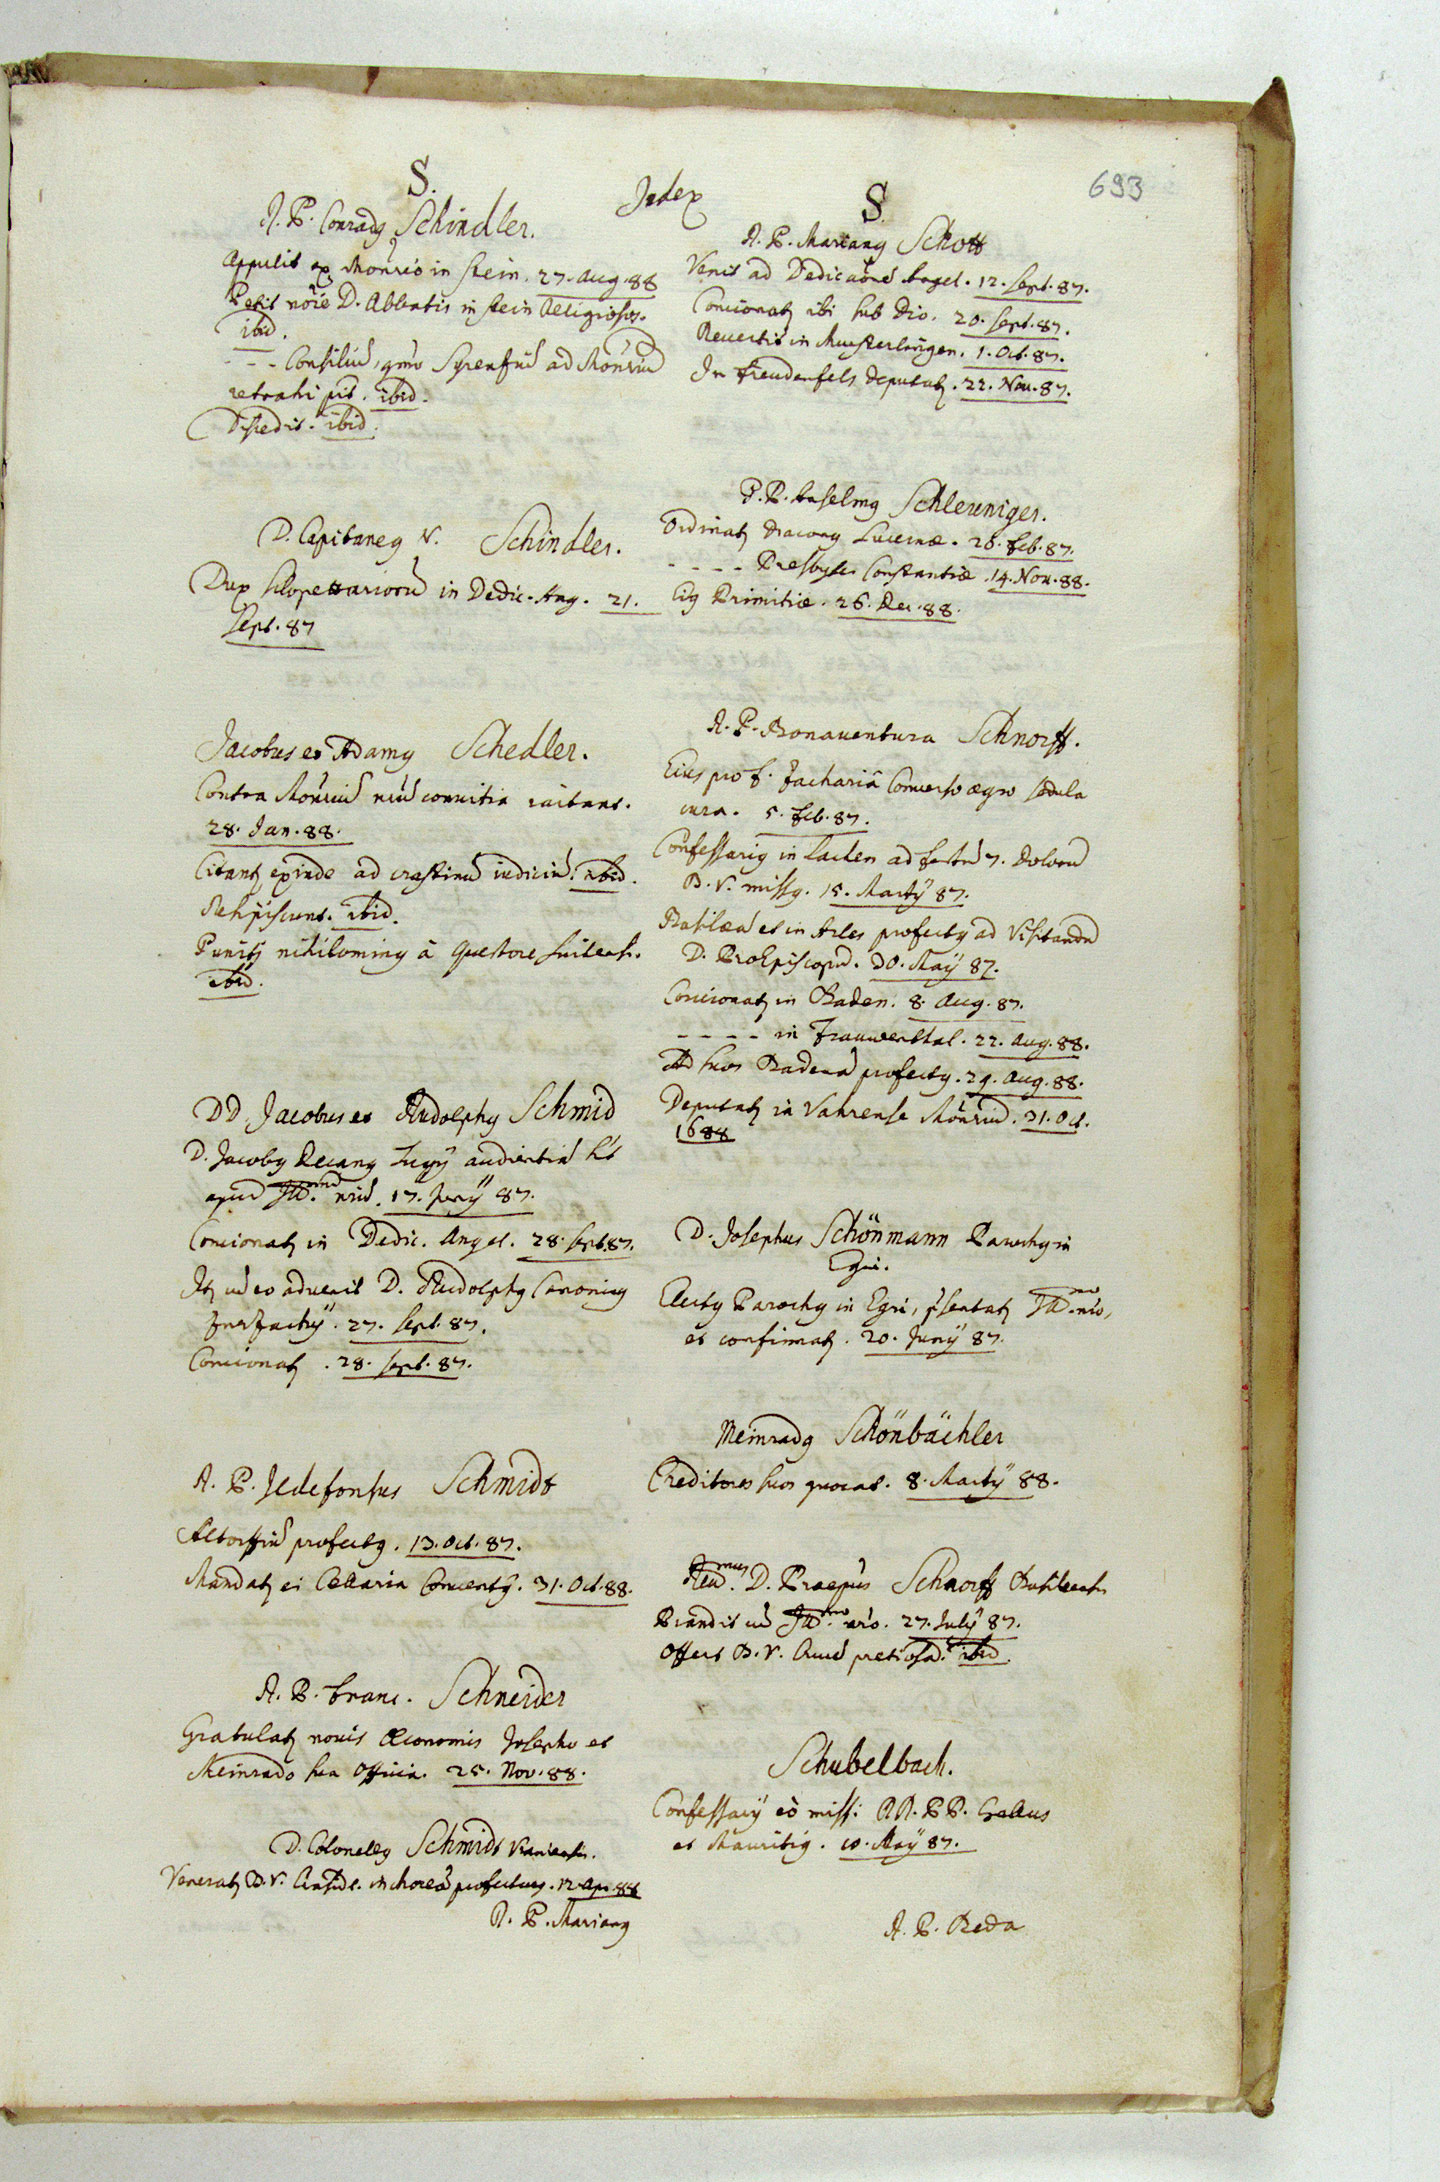 693
Index
S.
R. P. Conradg Schindler.
Appulit ex Monrio in Stein. 27. Aug. 88
Petit noie D. Abbatis in Stein Religiosos.
ibid.
- - Consiliu, ad Monriu
retrahi pit. ibid.
Discedit. ibid.
D. Capitaneg N. Schindler.
Dux sclopettarioru in Dedic. Ang. 21.
Sept. 87
Jacobus et Adamg Schedler.
Contra Monriu nru convitia iactant.
28. Jan. 88.
Citantr exinde ad crastinu iudiciu. ibid.
Resipiscunt. ibid.
Punitr nihiloming à Questore Suitensi.
ibid.
DD. Jacobus et Rudolphg Schmid
D. Jacobg Decang Tugij audientia ht
apud nru. 17. Junij 87.
Concionatr in Dedic. Angel. 28. Sept. 87.
Itr cu eo advenit D. Rudolphg Canonicg
Zurzachij. 27. Sept. 87.
Concionatr. 28. Sept. 87.
R. P. Ildefonsus Schmidt
Altorffiu profectg. 13. Oct. 87.
Mandatr ei Cellaria Conventg. 31. Oct. 88.
R. P. Franc. Schneider
Gratulatr novis Oeconomis Josepho et
Meinrado sua officia. 25. Nov. 88.
D. Colonellg Schmidt Uraniensis.
Veneratr B. V. Antide. in Morea profecturg. 12. Apr. 88
R. P. Mariang
S.
R. P. Mariang Schott
Venit ad Dedicaone Angel. 12. Sept. 87.
Concionatr ibi sub Dio. 20. Sept. 87.
Revertit in Munsterlingen. 1. Oct. 87.
In Freudenfels deputatr. 22. Nov. 87.
P. P. Anselmg Schleuniger.
Ordinatr Diacong Lucernae. 26. Feb. 87.
- - - - Presbyter Constantiae. 14. Nov. 88.
Eig Primitiae. 26. Dec. 88.
R. P. Bonaventura Schnorff.
Eius pro f. Zacharia Converso aegro sedula
cura. 5. Feb. 87.
Confessarig in Lachen ad festu 7. Doloru
B. V. missg. 15. Martij 87.
Basilea et in Arles profectg ad Visitandu
D. ProEpiscopu. 30. Maij 87.
Concionatr in Baden. 8. Aug. 87.
- - - - in Frauwenthal. 22. Aug. 88.
Ad suos Badena profectg. 29. Aug. 88.
Deputatr in Vahrense Monriu. 31. Oct.
1688
D. Josephus Schönmann Parochg in
Egri.
Electg Parochg in Egri, psentatr nro,
et confirmatr. 20. Junij 87.
Meinradg Schönbächler
Creditores suos quocat. 8. Martij 88.
D. Praepus Schnorff Basileensis
Prandit cu nro. 27. Julij 87.
Offert B. V. pretiosa. ibid.
Schubelbach.
Confessarij eò missi RR. PP. Gallus
et Mauritig. 10. Maij 87.
R. P. Beda